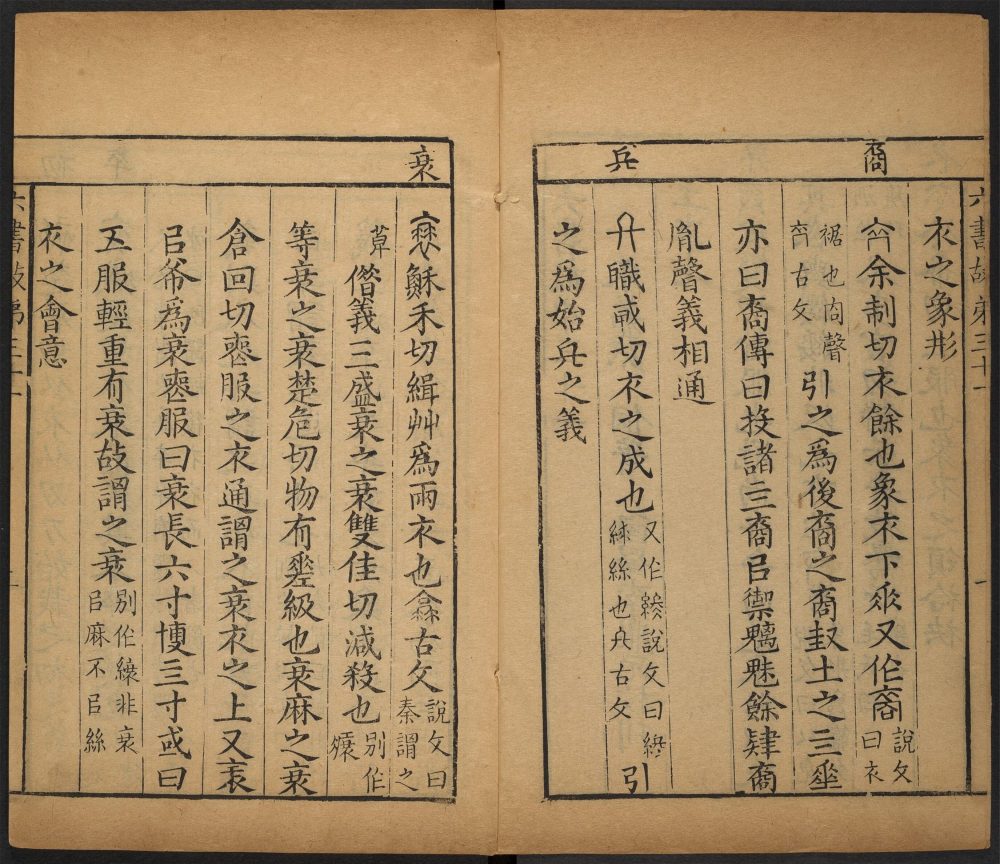 裔
兵
六書故弟三十一
衣之象形
余制切衣餘也象衣下𠂹又作裔說文曰衣
裾也㕯聲𠔁古文引之爲後裔之裔封土之三𡍮
亦曰裔傳曰投諸三裔㠯禦魑魅餘肄裔
胤聲義相通
職戎切衣之成也又作終說文曰終
練絲也古文引
之爲始兵之義
衰
穌禾切緝艸爲雨衣也古文說文曰秦謂之
萆僭義三盛衰之衰雙佳切減殺也別作
等衰之衰楚危切物有𡍮級也衰麻之衰
倉回切喪服之衣通謂之衰衣之上又
㠯爺爲衰喪服曰衰長六寸博三寸或曰
五服輕重有衰故謂之衰別作縗非衰㠯麻不㠯絲
衣之會意